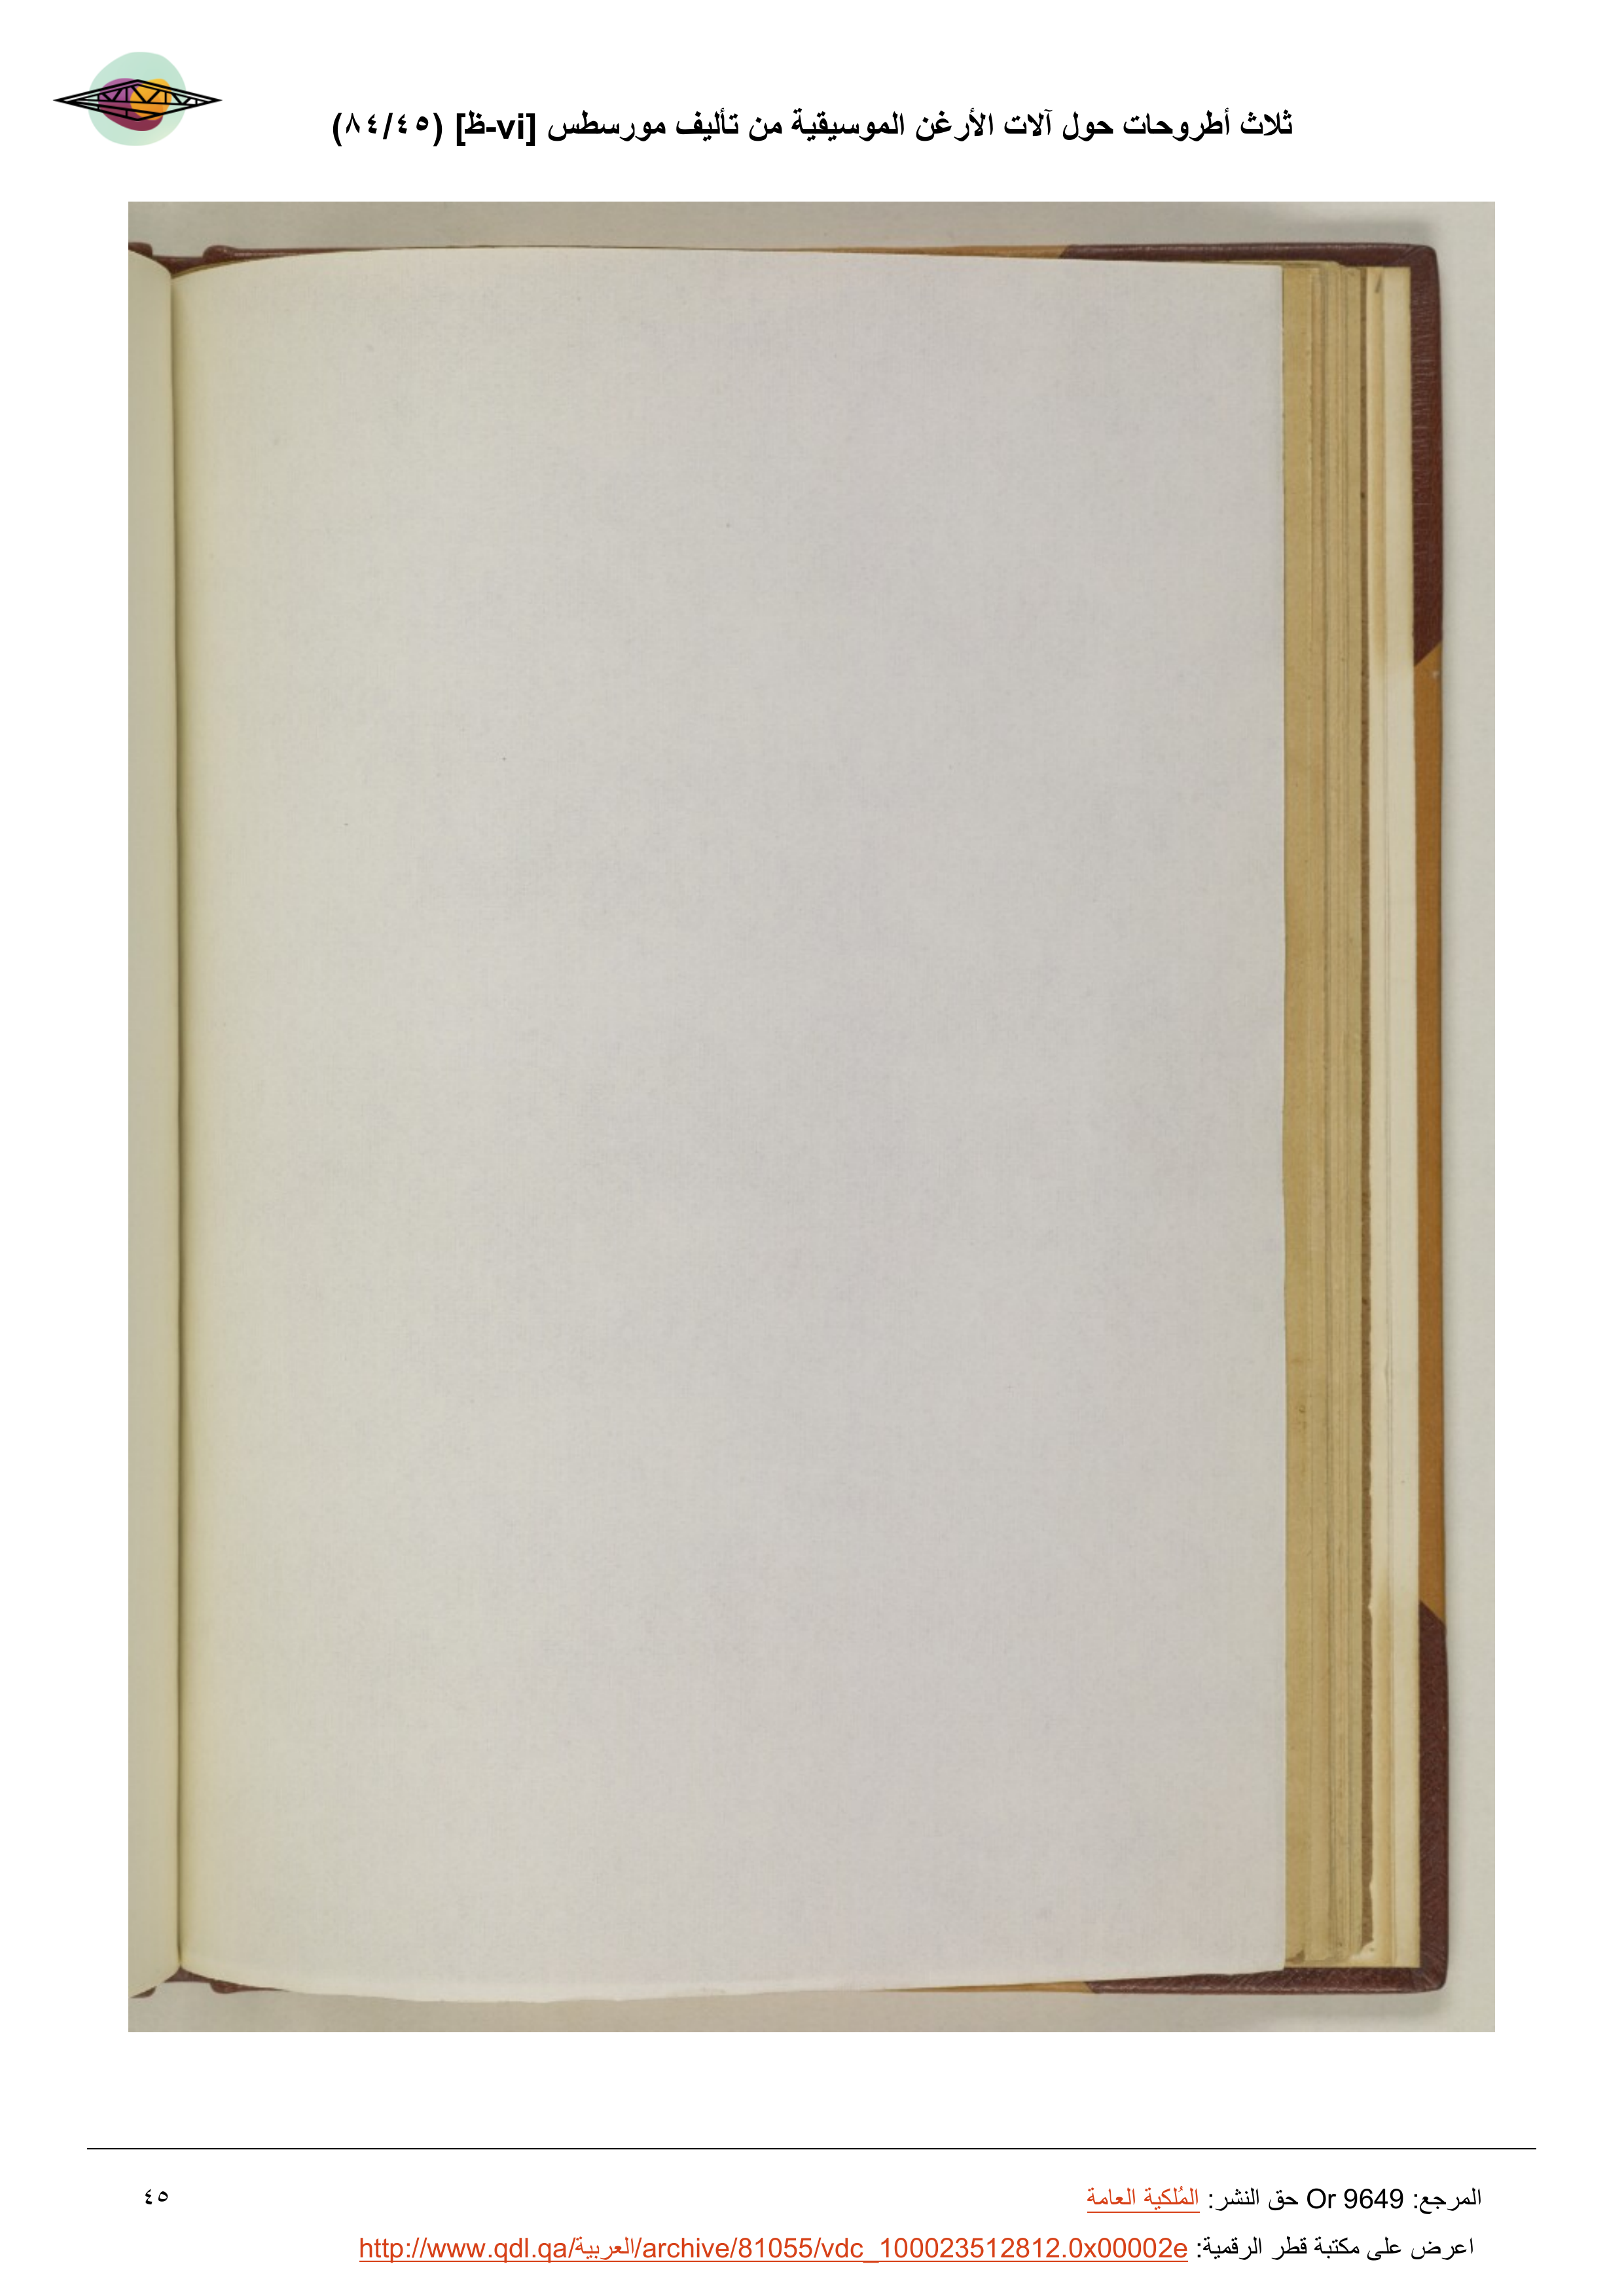 ثلاث أطروحات حول آلات الأرغن الموسيقية من تأليف مورسطس [vi-ظ] (٨٤/٤٥)
المرجع: Or 9649 حق النشر: المُلكية العامة
٤٥
اعرض على مكتبة قطر الرقمية: http://www.qdl.qa/العربية/archive/81055/vdc_100023512812.0x00002e